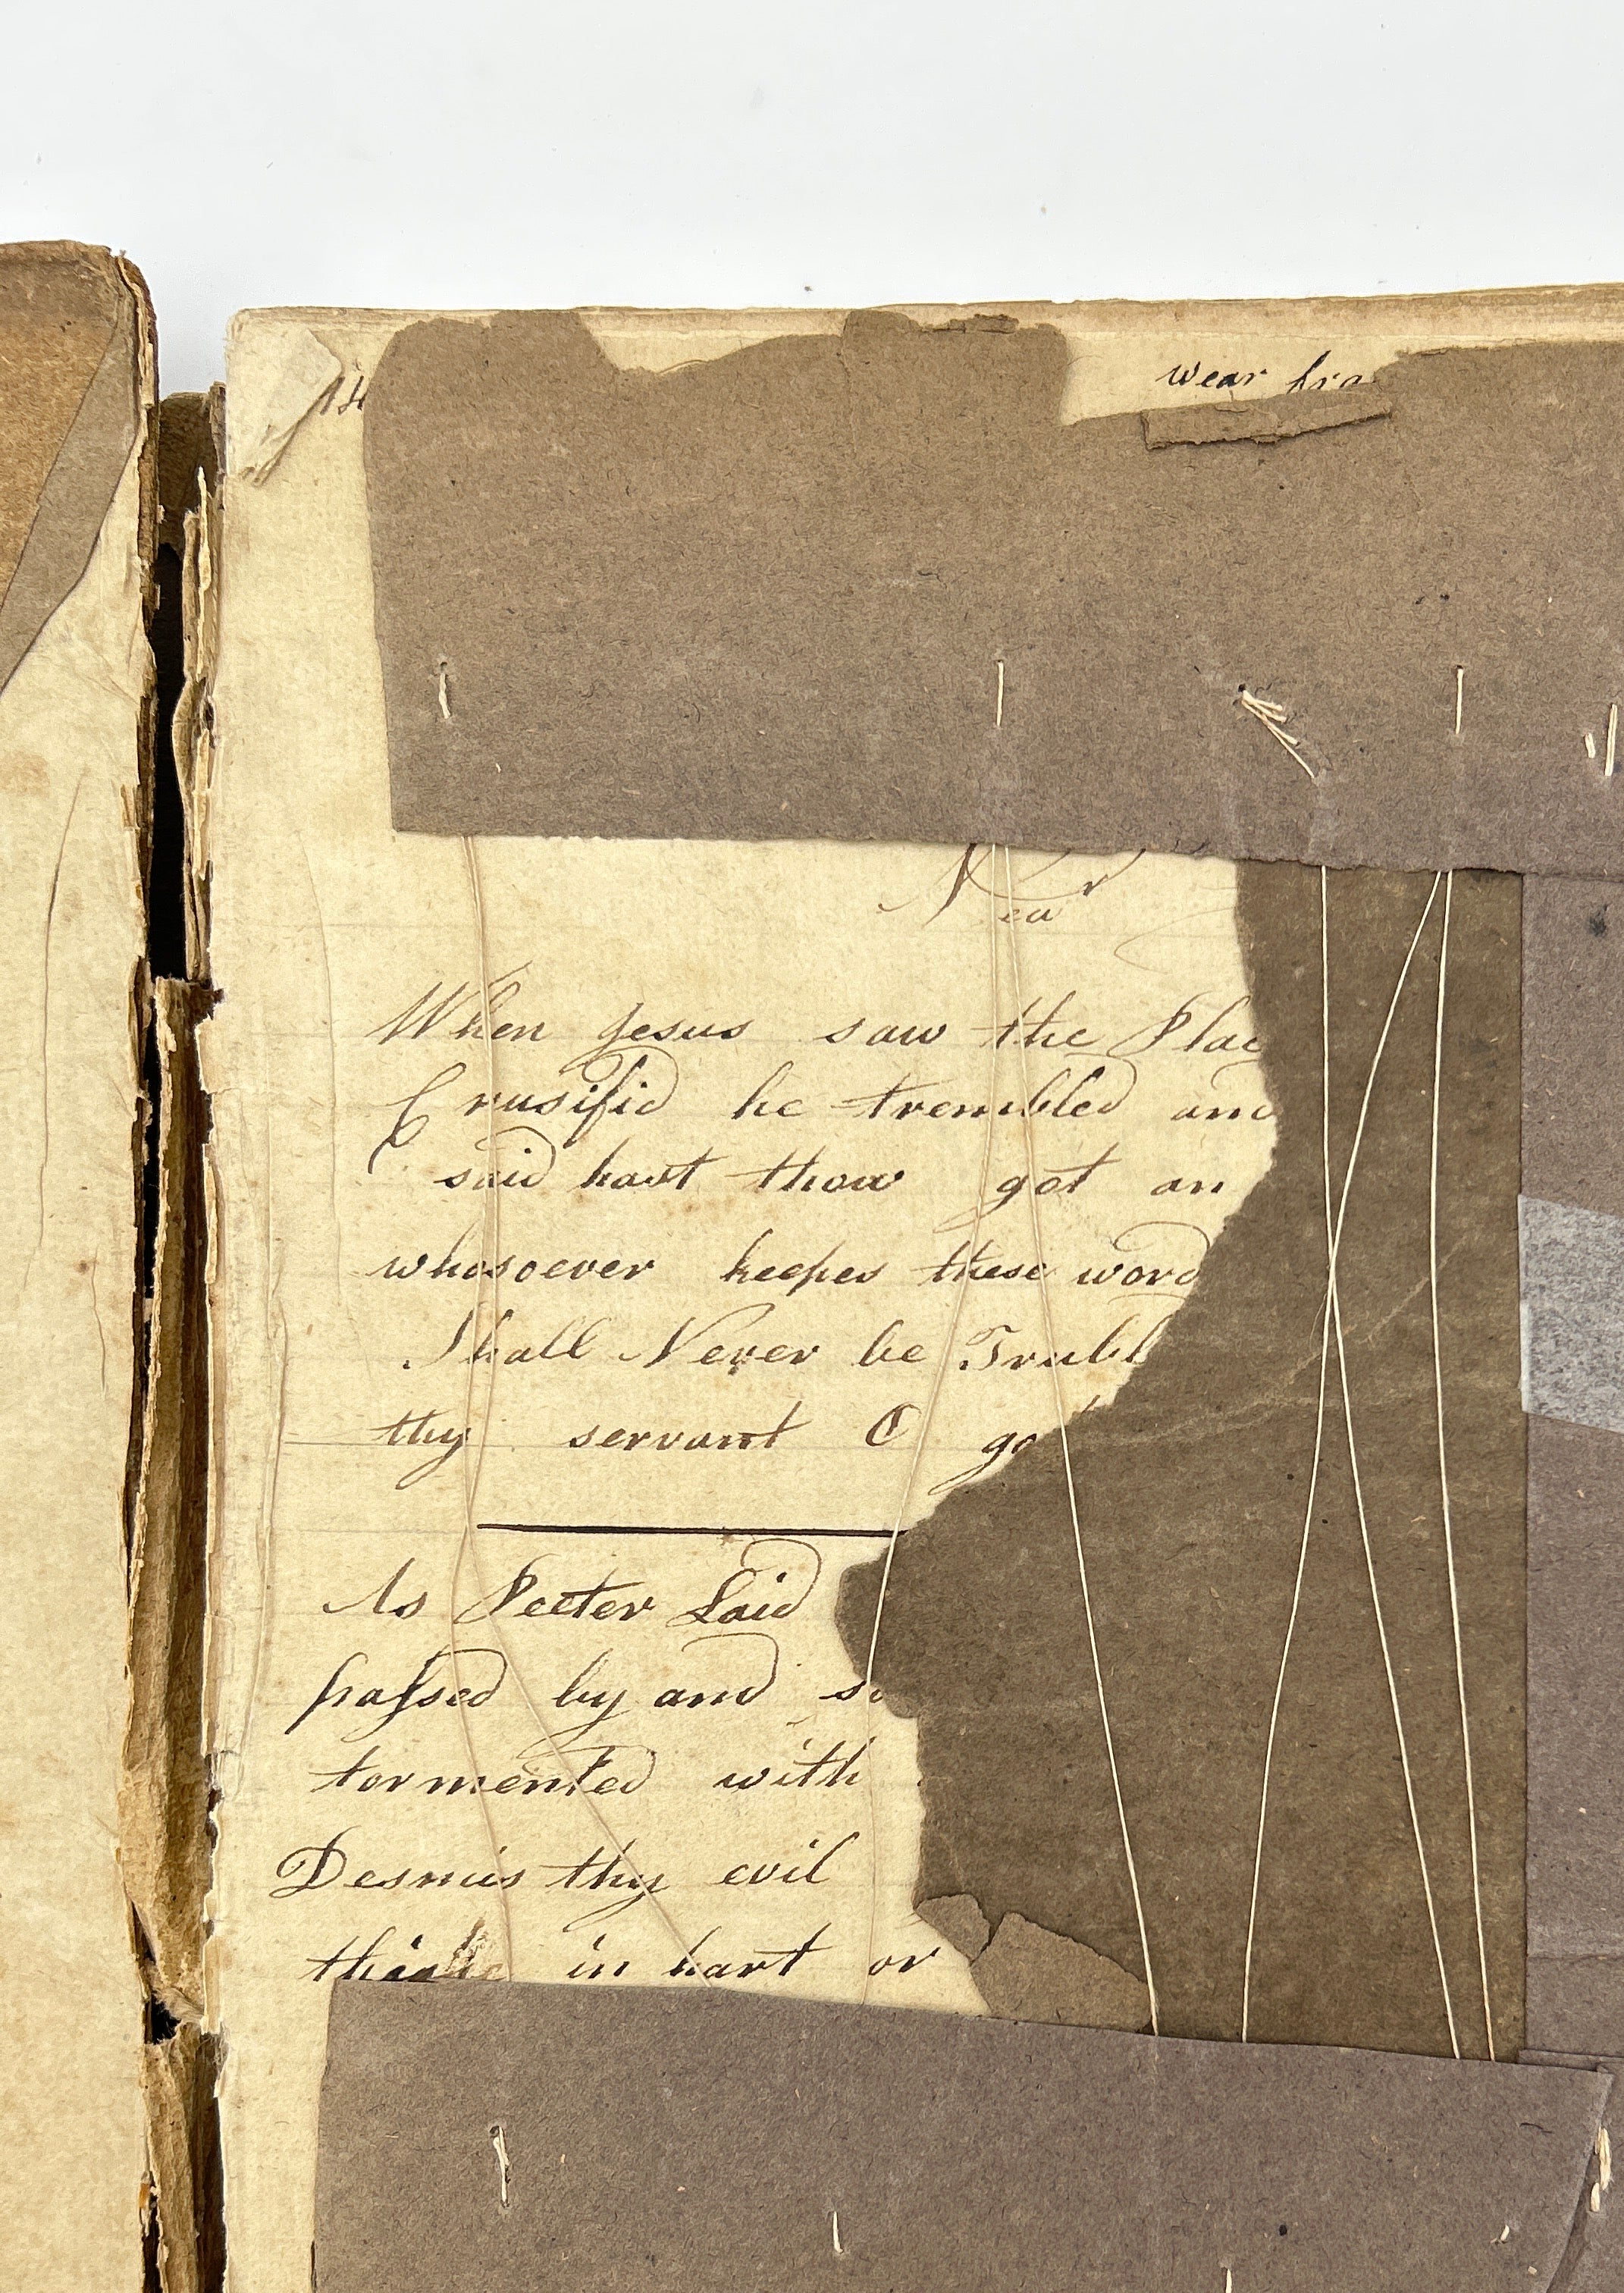 14
wear fra
When Jesus saw the Plac
Crusified he trembled and
said hast thow got an
whosoever keepes these word
Shall Never be Trubl
thy servant O go
As Peeter Laid
passed by and s
tormented with
Desmis thy evil
in hart or